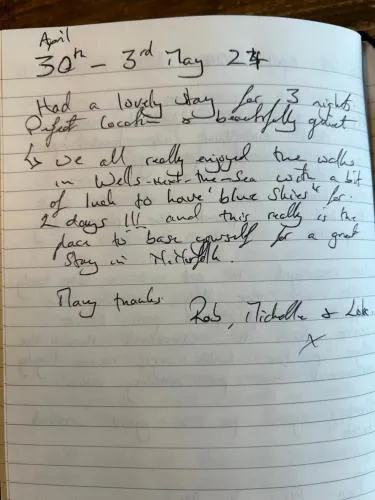 April
30th - 3rd May 24
Had a lovely stay for 3 nights
Perfect location & beautifully quiet
↳ we all really enjoyed the walks
in Wells-next-the-Sea with a bit
of luck to have 'blue skies' for
2 days !!! and this really is the
place to base yourself for a great
stay in N.Norfolk.
Many thanks
Rob, Michelle &
x